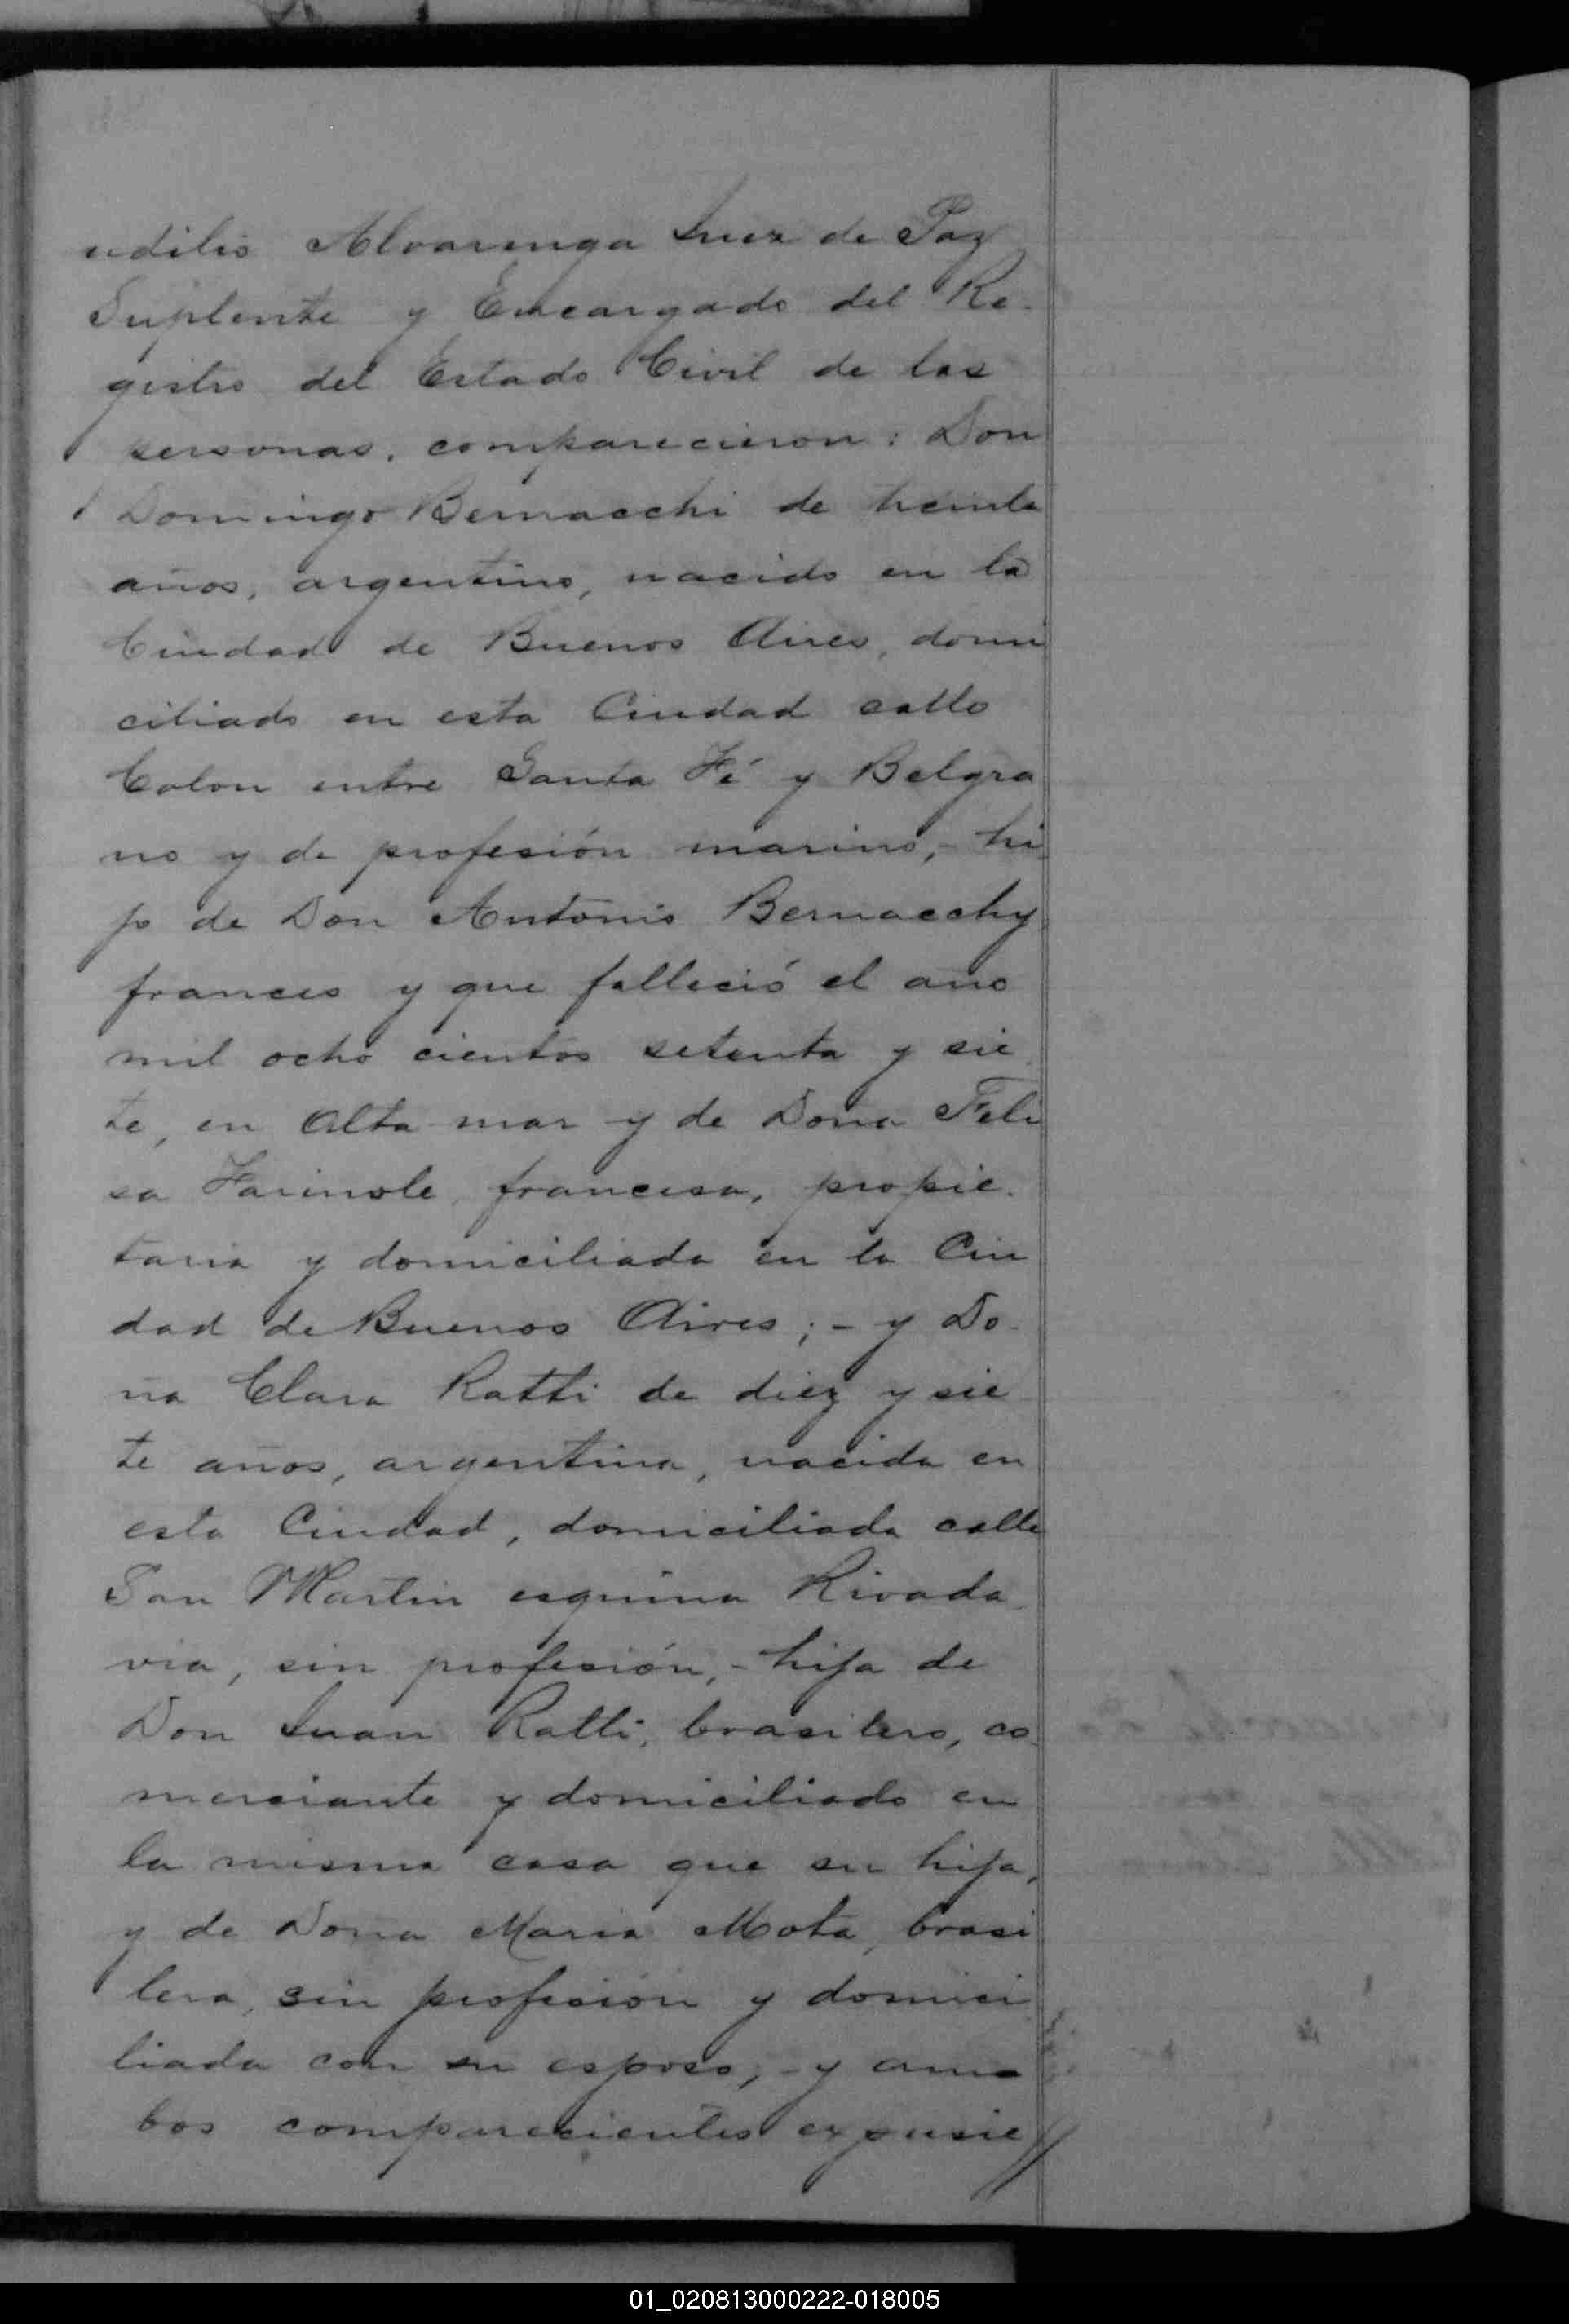 udilio Alvarenga Juez de Paz
Suplente y Encargado del Re-
gistro del Estado Civil de las
personas, comparecieron: Don
Domingo Bernacchi de treinta
años, argentino, nacido en la
Ciudad de Buenos Aires, domi
ciliado en esta Ciudad calle
Colon entre Santa Fé y Belgra
no y de profesión marino,- hi
jo de Don Antonio Bernacchy
frances y que falleció el año
mil ocho cientos setenta y sie
te, en Alta mar y de Doña Feli
sa Farinole, francesa, propie-
taria y domiciliada en la Ciu
dad de Buenos Aires;- y Do-
ña Clara Ratti de diez y sie
te años, argentina, nacida en
esta Ciudad, domiciliada calle
San Martin esquina Rivada
via, sin profesión,- hija de
Don Juan Ratti, brasilero, co
merciante y domiciliado en
la misma casa que su hija,
y de Doña Maria Mota, brasi
lera, sin profesión y domici
liada con su esposo;- y am
bos comparecientes expusie
01_020813000222-018005